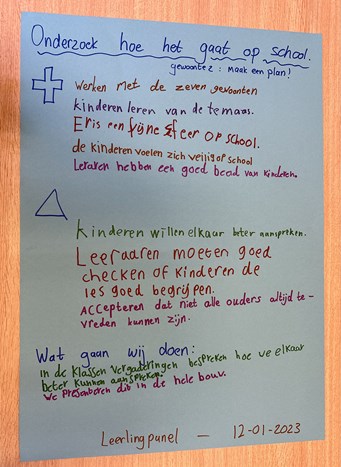 Onderzoek hoe het gaat op school.
gewoonte 2: maak een plan!
Werken met de zeven gewoonten
kinderen leren van de temaas.
Er is een fijne sfeer op school.
de kinderen voelen zich veilig op school
Leraren hebben een goed beeld van kinderen.
kinderen willen elkaar beter aanspreken.
Leeraaren moeten goed
checken of kinderen de
les goed begrijpen.
Accepteren dat niet alle ouders altijd te-
vreden kunnen zijn.
Wat gaan wij doen:
in de klassen vergaderingen bespreken hoe we elkaar
beter kunnen aanspreken.
We presenteren dit in de hele bouw.
Leerlingpanel — 12-01-2023